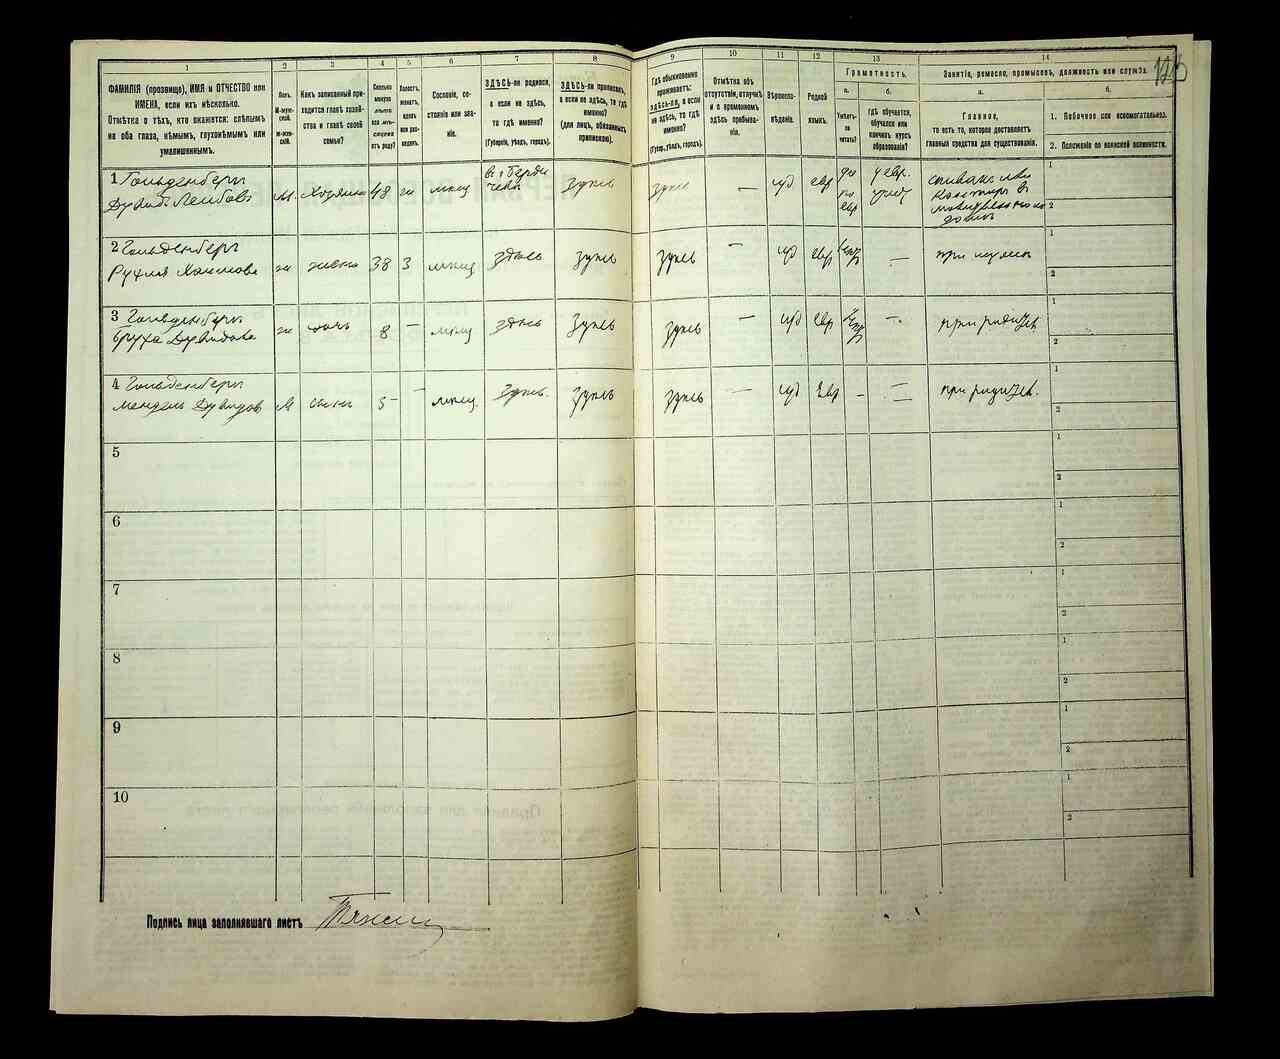 1
ФАМИЛІЯ (прозвище), ИМЯ и ОТЧЕСТВО или
ИМЕНА, если ихъ нѣсколько.
Отмѣтка о тѣхъ, кто окажется: слѣпымъ
на оба глаза, нѣмымъ, глухонѣмымъ или
умалишеннымъ.
2
Полъ.
М-муж-
ской.
Ж-жен-
скій.
3
Какъ записанный при-
ходится главѣ хозяй-
ства и главѣ своей
семьи?
4
Сколько
минуло
лѣтъ
или мѣ-
сяцевъ
отъ роду?
5
Холостъ,
женатъ,
вдовъ
или раз-
веденъ.
6
Сословіе, со-
стояніе или зва-
ніе.
7
ЗДѢСЬ-ли родился,
а если не здѣсь,
то гдѣ именно?
(Губернія, уѣздъ, городъ).
8
ЗДѢСЬ-ли приписанъ,
а если не здѣсь, то гдѣ
именно?
(для лицъ, обязанныхъ
припискою).
9
Гдѣ обыкновенно
проживаетъ:
ЗДѢСЬ-ли, а если
не здѣсь, то гдѣ
именно?
(Губер., уѣздъ, городъ).
10
Отмѣтка объ
отсутствіи, отлучкѣ
и о временномъ
здѣсь пребыва-
ніи.
11
Вѣроиспо-
вѣданіе.
12
Родной
языкъ.
13
Грамотность.
а.
Умѣетъ-
ли
читать?
б.
Гдѣ обучается,
обучался или
кончилъ курсъ
образованія?
14
Занятіе, ремесло, промыселъ, должность или служба.
а.
Главное,
то есть то, которое доставляетъ
главныя средства для существованія.
б.
1. Побочное или вспомогательное.
2. Положеніе по воинской повинности.
1 Гольденберг
Дувид Лейбов м. Хозяин 48 ж мещ в г Бердичеве здесь здесь — иуд евр да по евр у евр.
1
2
2 Гольденберг
Рухля ж жена 38 з мещ здесь здесь здесь — иуд евр — при муже
1
2
3 Гольденберг
Бруха Дувидова ж дочь 8 — мещ здесь здесь здесь — иуд евр — при родител
1
2
4 Гольденберг
Мендель Дувидов М сын 5 — мещ. здесь. здесь здесь — иуд Евр — — при родител.
1
2
5
1
2
6
1
2
7
1
2
8
1
2
9
1
2
10
1
2
Подпись лица заполнявшаго листъ